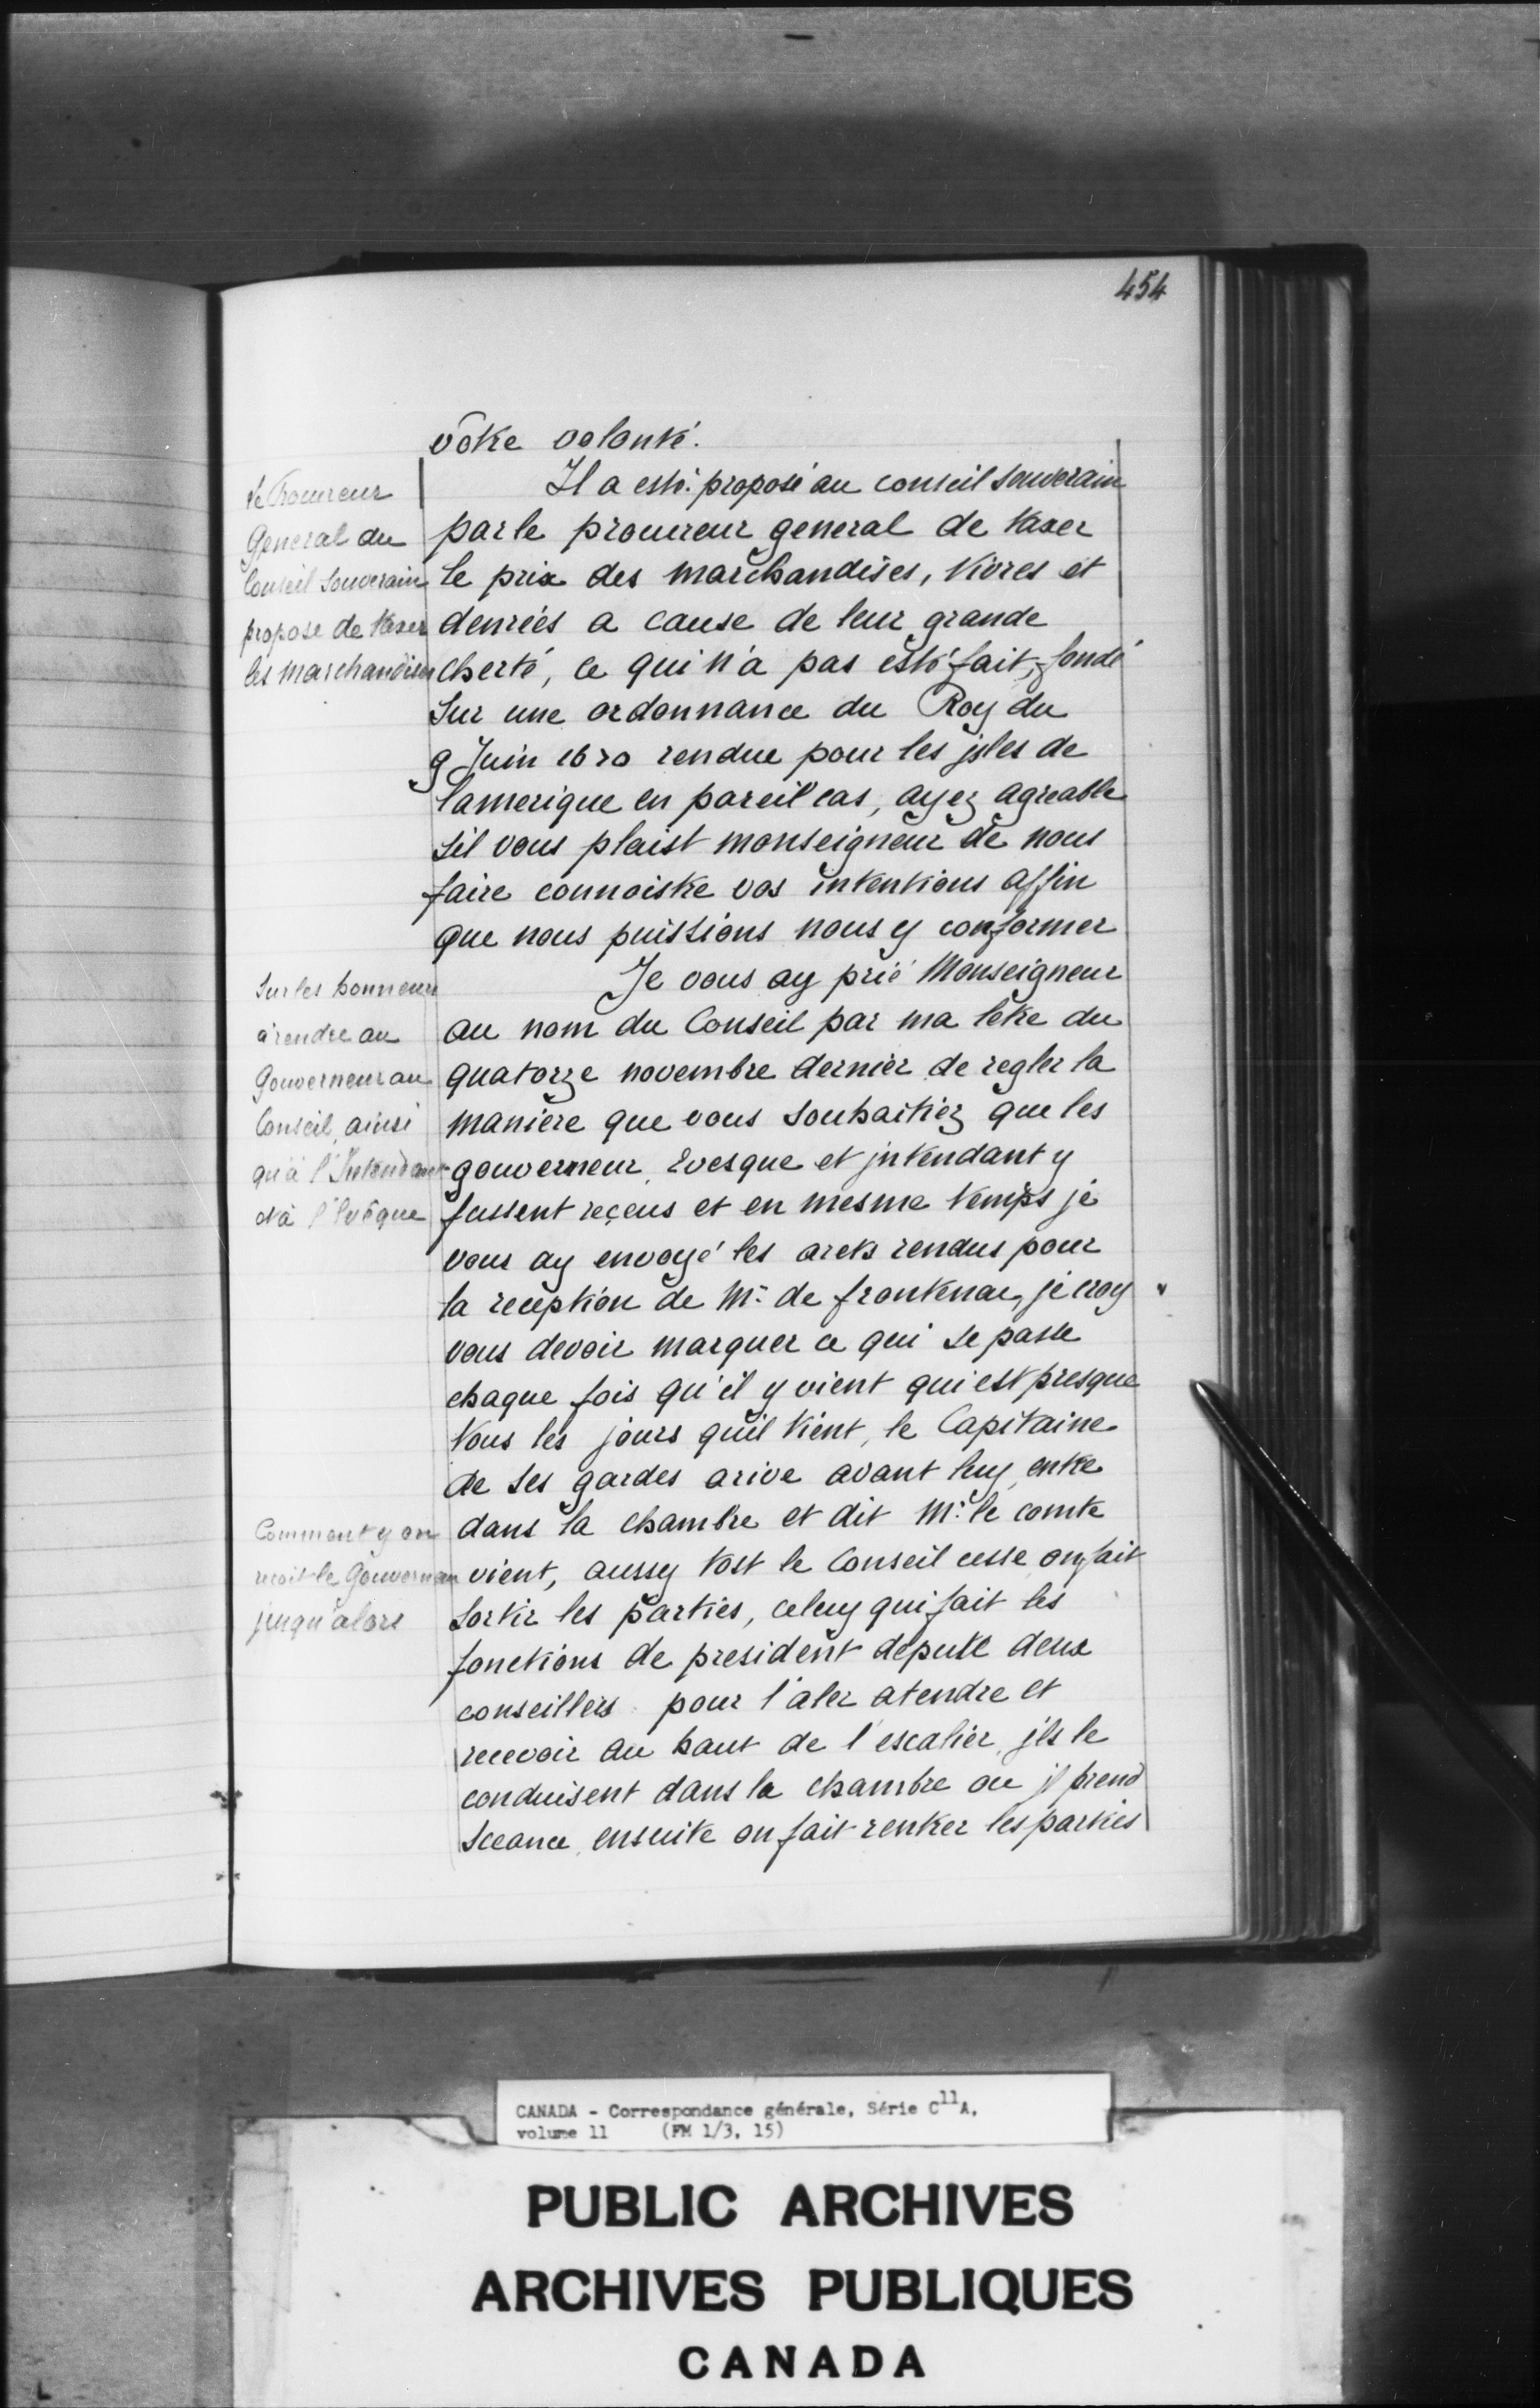 454
vôtre volonté.
Le Procureur
General du
Conseil Souverain
propose de taxer
les marchandises
Il a esté proposé au conseil souverain
par le procureur general de taxer
le prix des marchandises, vivres et
denrées a cause de leur grande
cherté, ce qui n'a pas esté fait, fondé
sur une ordonnance du Roy du
9 Juin 1670 rendue pour les jsles de
lamerique en pareil cas, ayez agreable
sil vous plaist monseigneur de nous
faire connoistre vos intentions affin
que nous puissions nous y conformer
Sur les honneurs
à rendre au
Gouverneur au
Conseil, ainsi
qu'à l'Intendant
et à l'Evêque
Je vous ay prié Monseigneur
au nom du Conseil par ma lettre du
quatorze novembre dernier de regler la
maniere que vous souhaitiez que les
gouverneur, Evesque et jntendant y
fussent reçeus et en mesme temps je
vous ay envoyé les arets rendus pour
la reception de Mr. de frontenac, je croy
vous devoir marquer ce qui se passe
chaque fois qu'il y vient qui est presque
tous les jours quil tient, le Capitaine
de ses gardes arive avant luy, entre
Comment y on
recoit le Gouverneur
jusqu'alors
dans la chambre et dit Mr. le comte
vient, aussy tost le Conseil cesse on fait
sortir les parties, celuy qui fait les
fonctions de president depute deux
conseillers pour l'aler atendre et
recevoir au haut de l'escalier, jls le
conduisent dans la chambre ou jl prend
sceance, ensuite on fait rentrer les parties
CANADA - Correspondance générale, Série C11A,
volume 11 (FM 1/3, 15)
PUBLIC ARCHIVES
ARCHIVES PUBLIQUES
CANADA